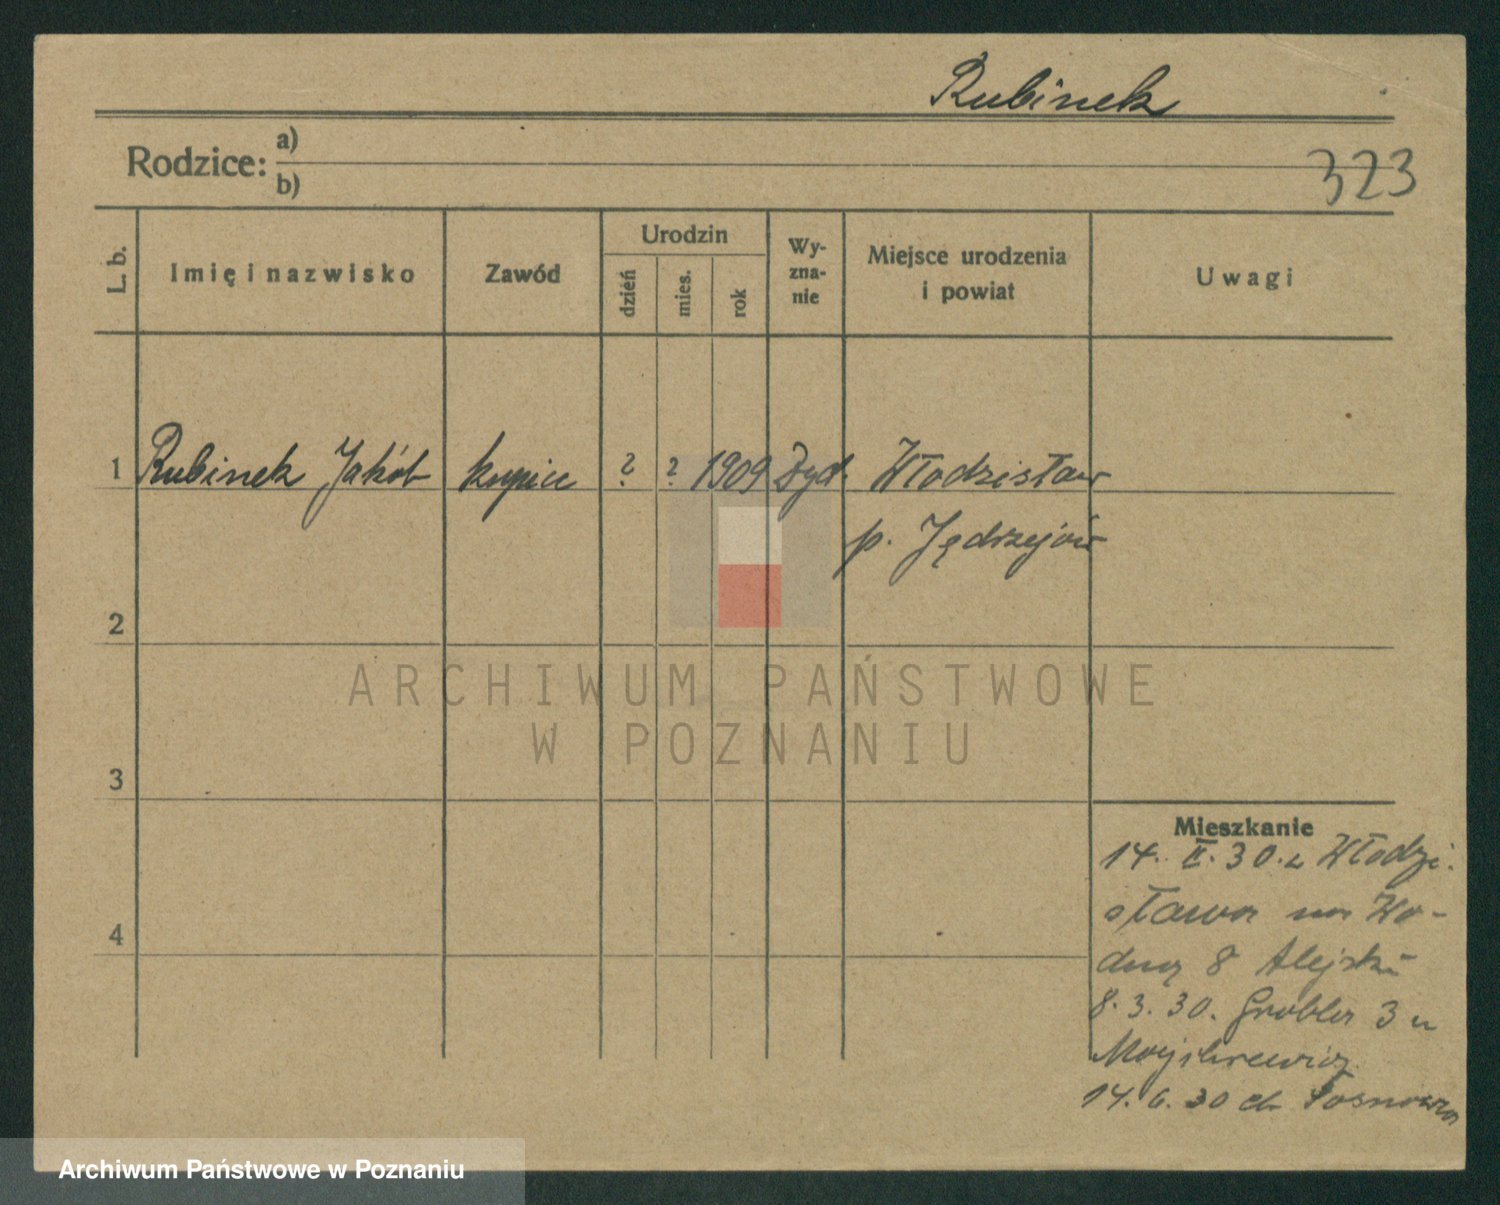 Rubinek
Rodzice: a)
b)
323
L. b.
Imię i nazwisko
Zawód
Urodzin
dzień
mies.
rok
Wy-
zna-
nie
Miejsce urodzenia
i powiat
Uwagi
1 Rubinek Jakób kupiec ? ? 1909 Włodzisław
p. Jędrzejów
2
3
4
ARCHIWUM PAŃSTWOWE
W POZNANIU
Mieszkanie
14. II. 30. z Włodzi-
sława na Wo-
dną 8 Alejski
8. 3. 30. Grobla 3 u
14. 6. 30 do
Archiwum Państwowe w Poznaniu